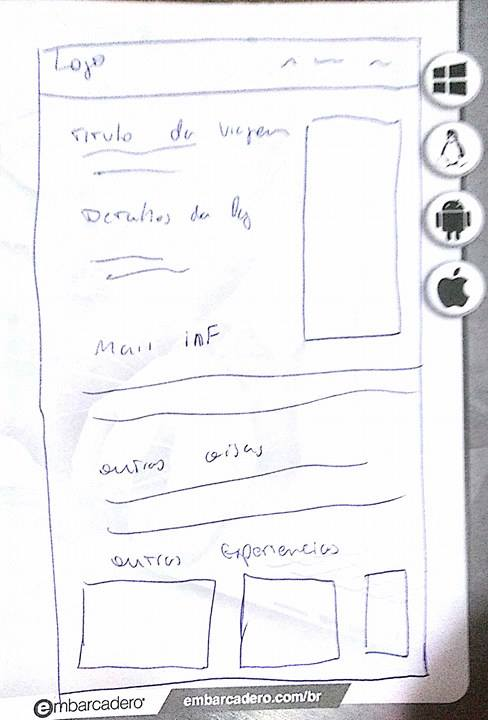 Logo
Titulo da Viagem
Detalhes da
Mais inf
outras coisas
outras Experiencias
embarcadero
embarcadero.com/br